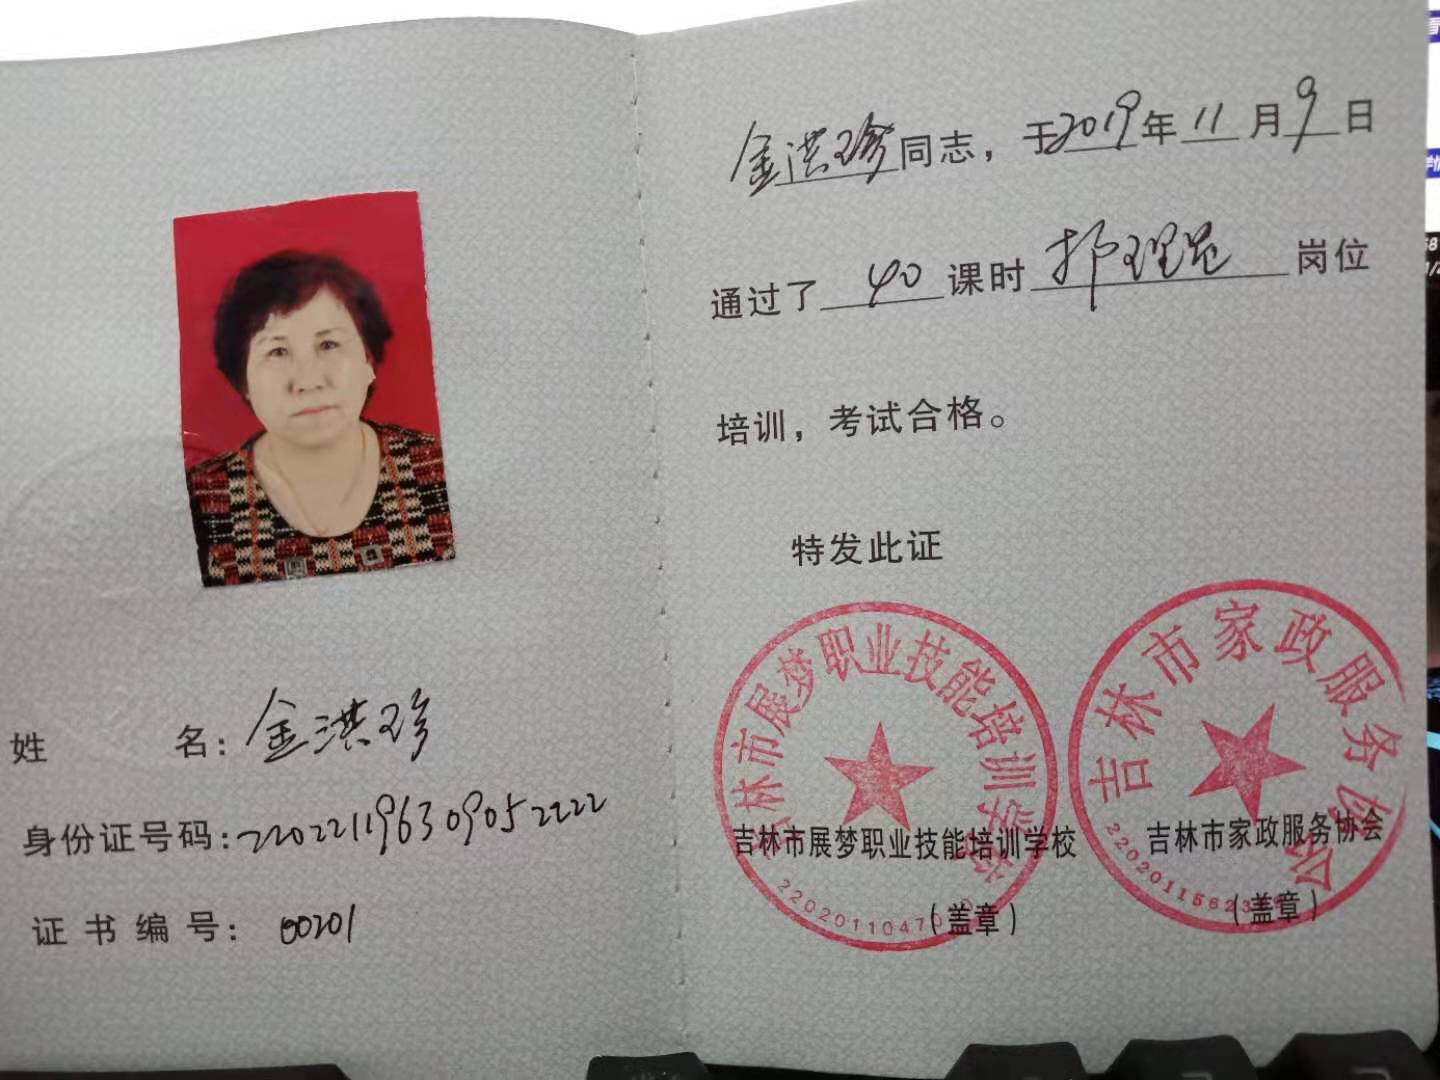 姓 名：金洪珍
身份证号码：220221196309052222
证书编号：00201
金洪珍同志，于2019年11月9日
通过了 40 课时 护理员 岗位
培训，考试合格。
特发此证
吉林市展梦职业技能培训学校
吉林市展梦职业技能培训学校
（盖章）
吉林市家政服务协会
吉林市家政服务协会
（盖章）